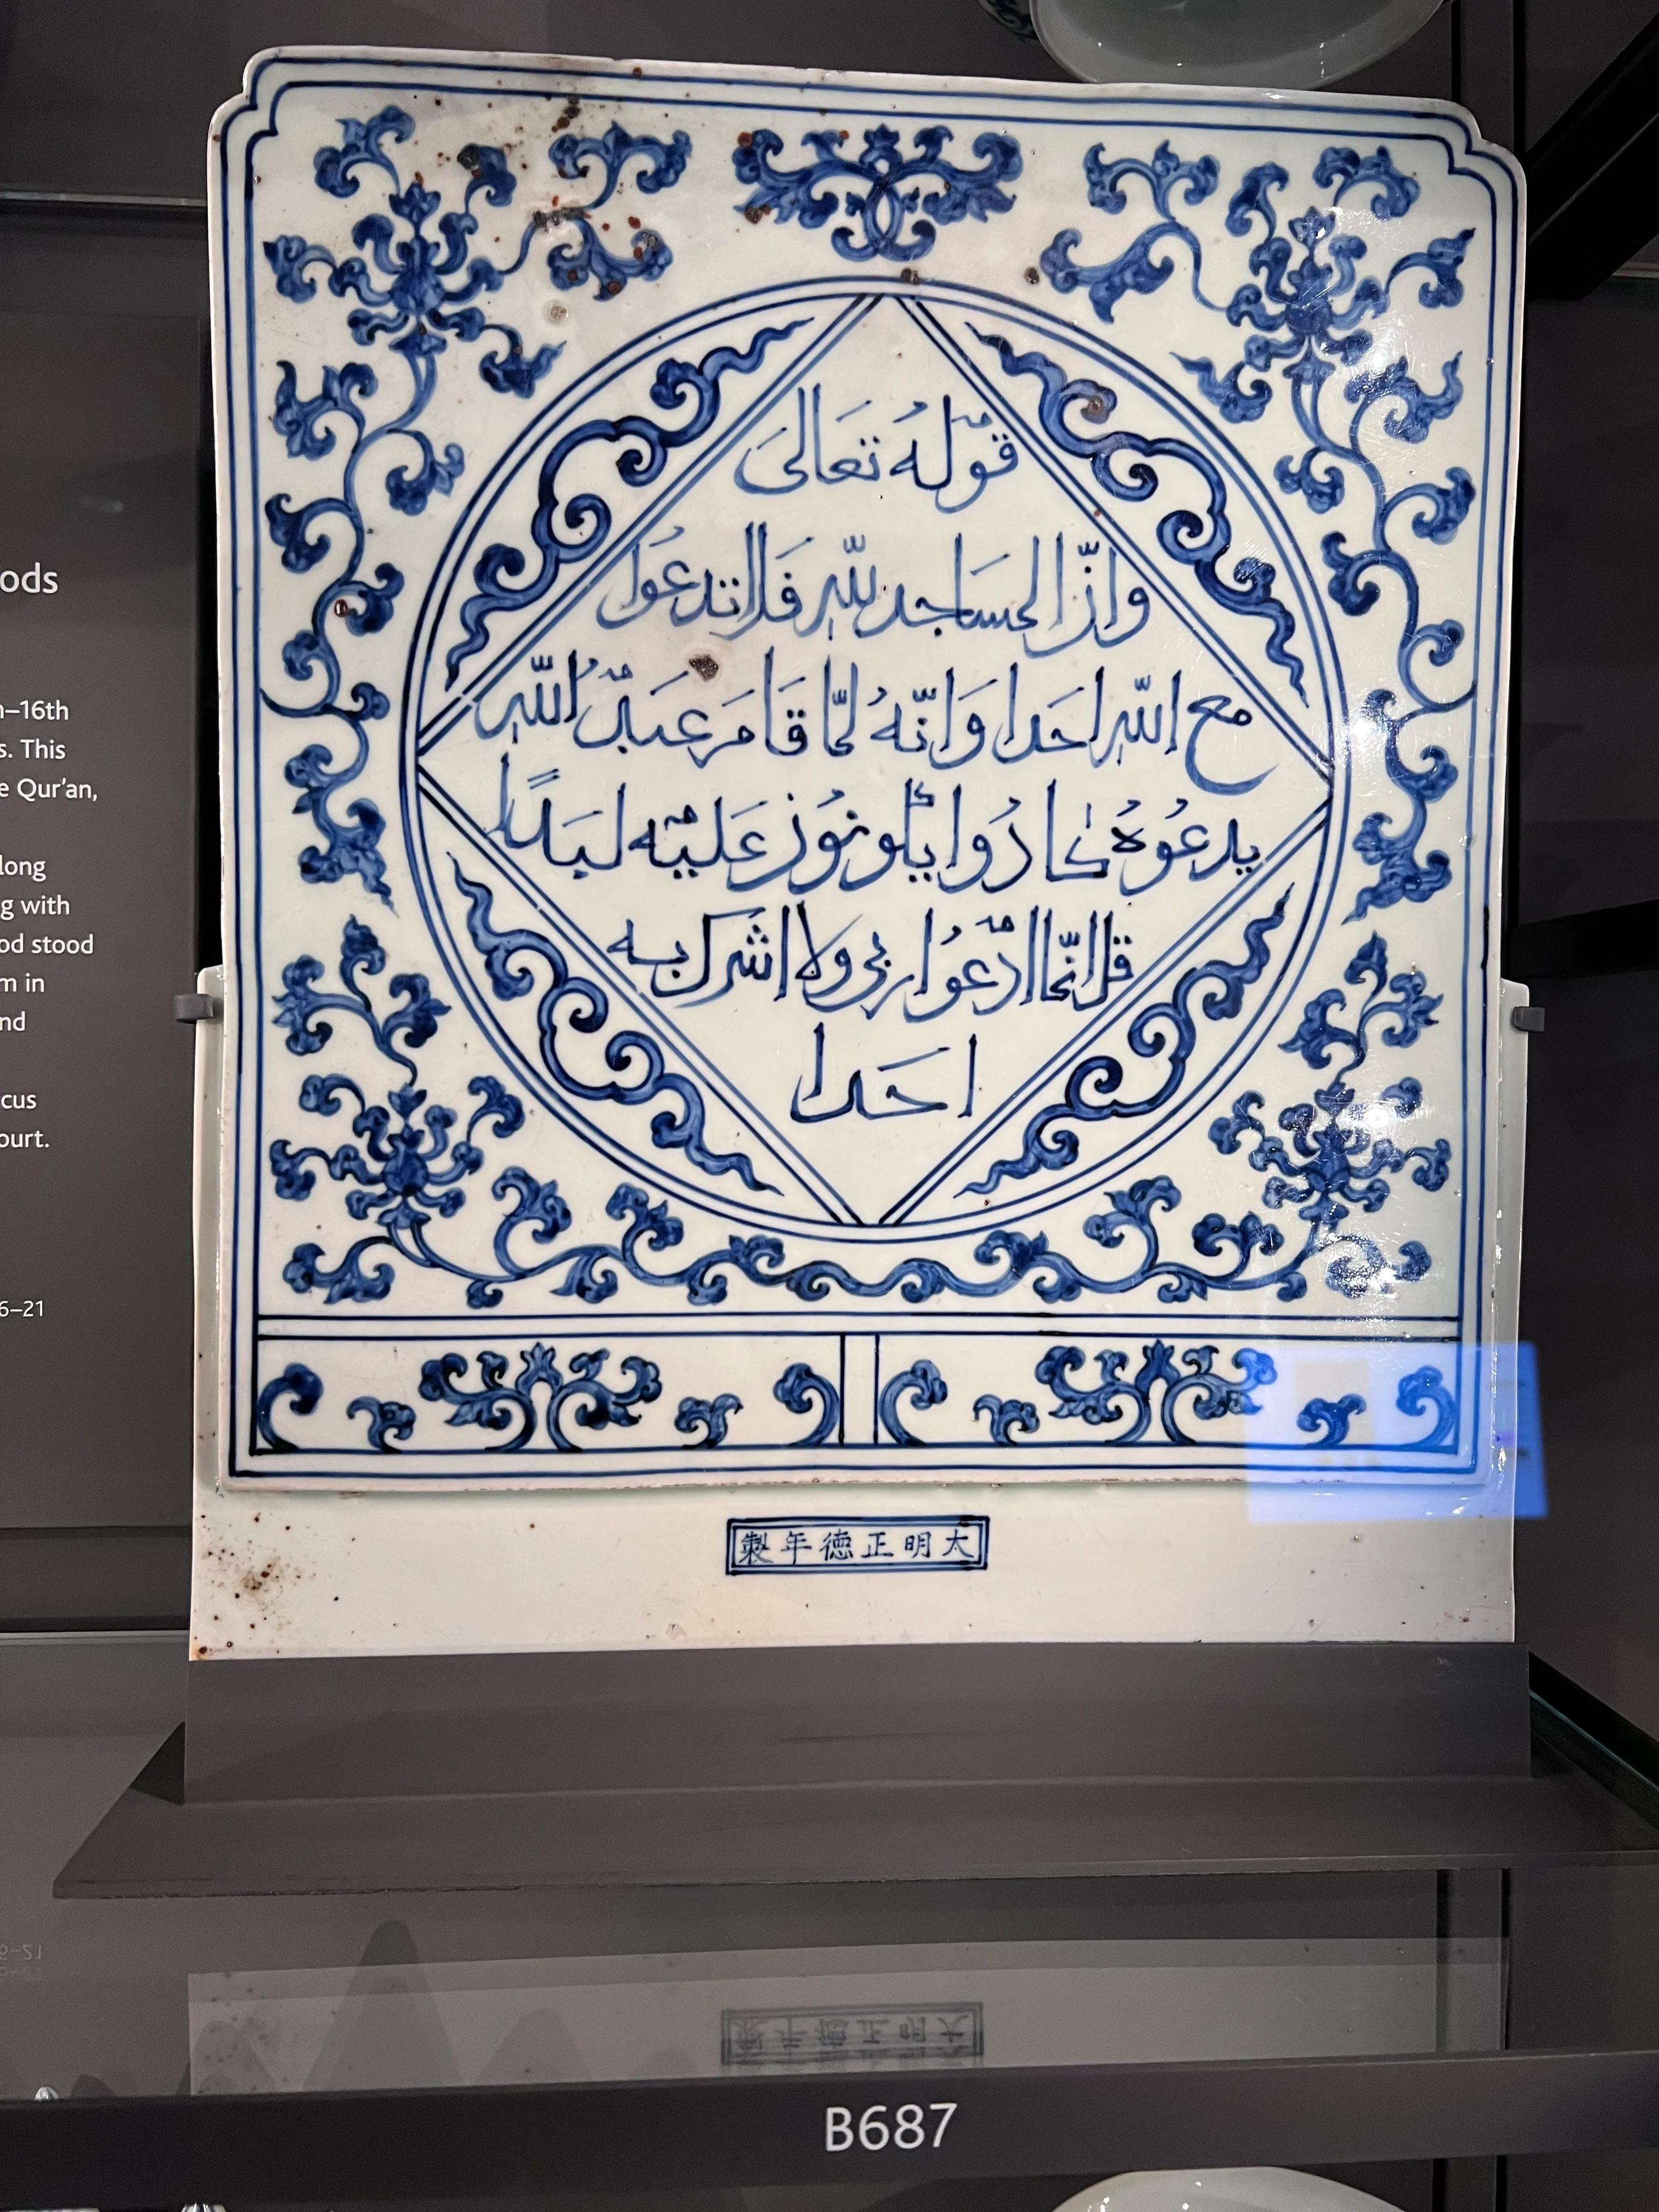 ods
–16th
s. This
e Qur'an,
long
g with
od stood
m in
nd
cus
ourt.
6–21
قوله تعالى
وان المساجد لله فلا تدعوا
مع الله احدا وانه لما قام عبد الله
يدعوه كادوا يكونون عليه لبدا
قل انما ادعوا ربي ولا اشرك به
احدا
大明正德年製
B687